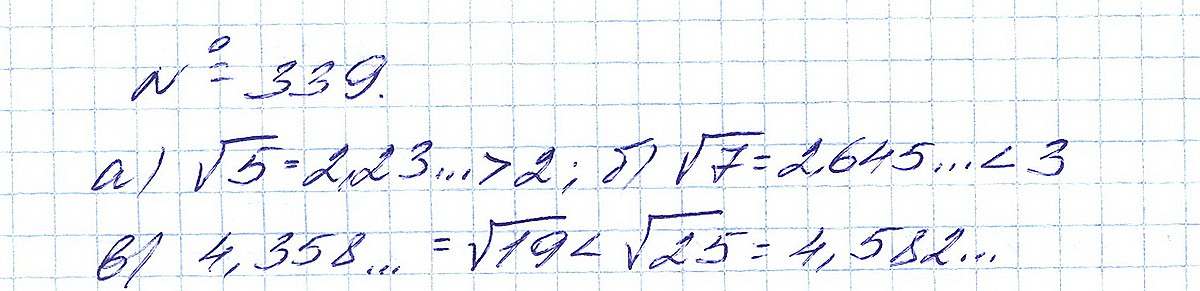 № 339.
а) √5 = 2,23... > 2; б) √7 = 2,645... < 3
в) 4,358... = √19 < √25 = 4,582...